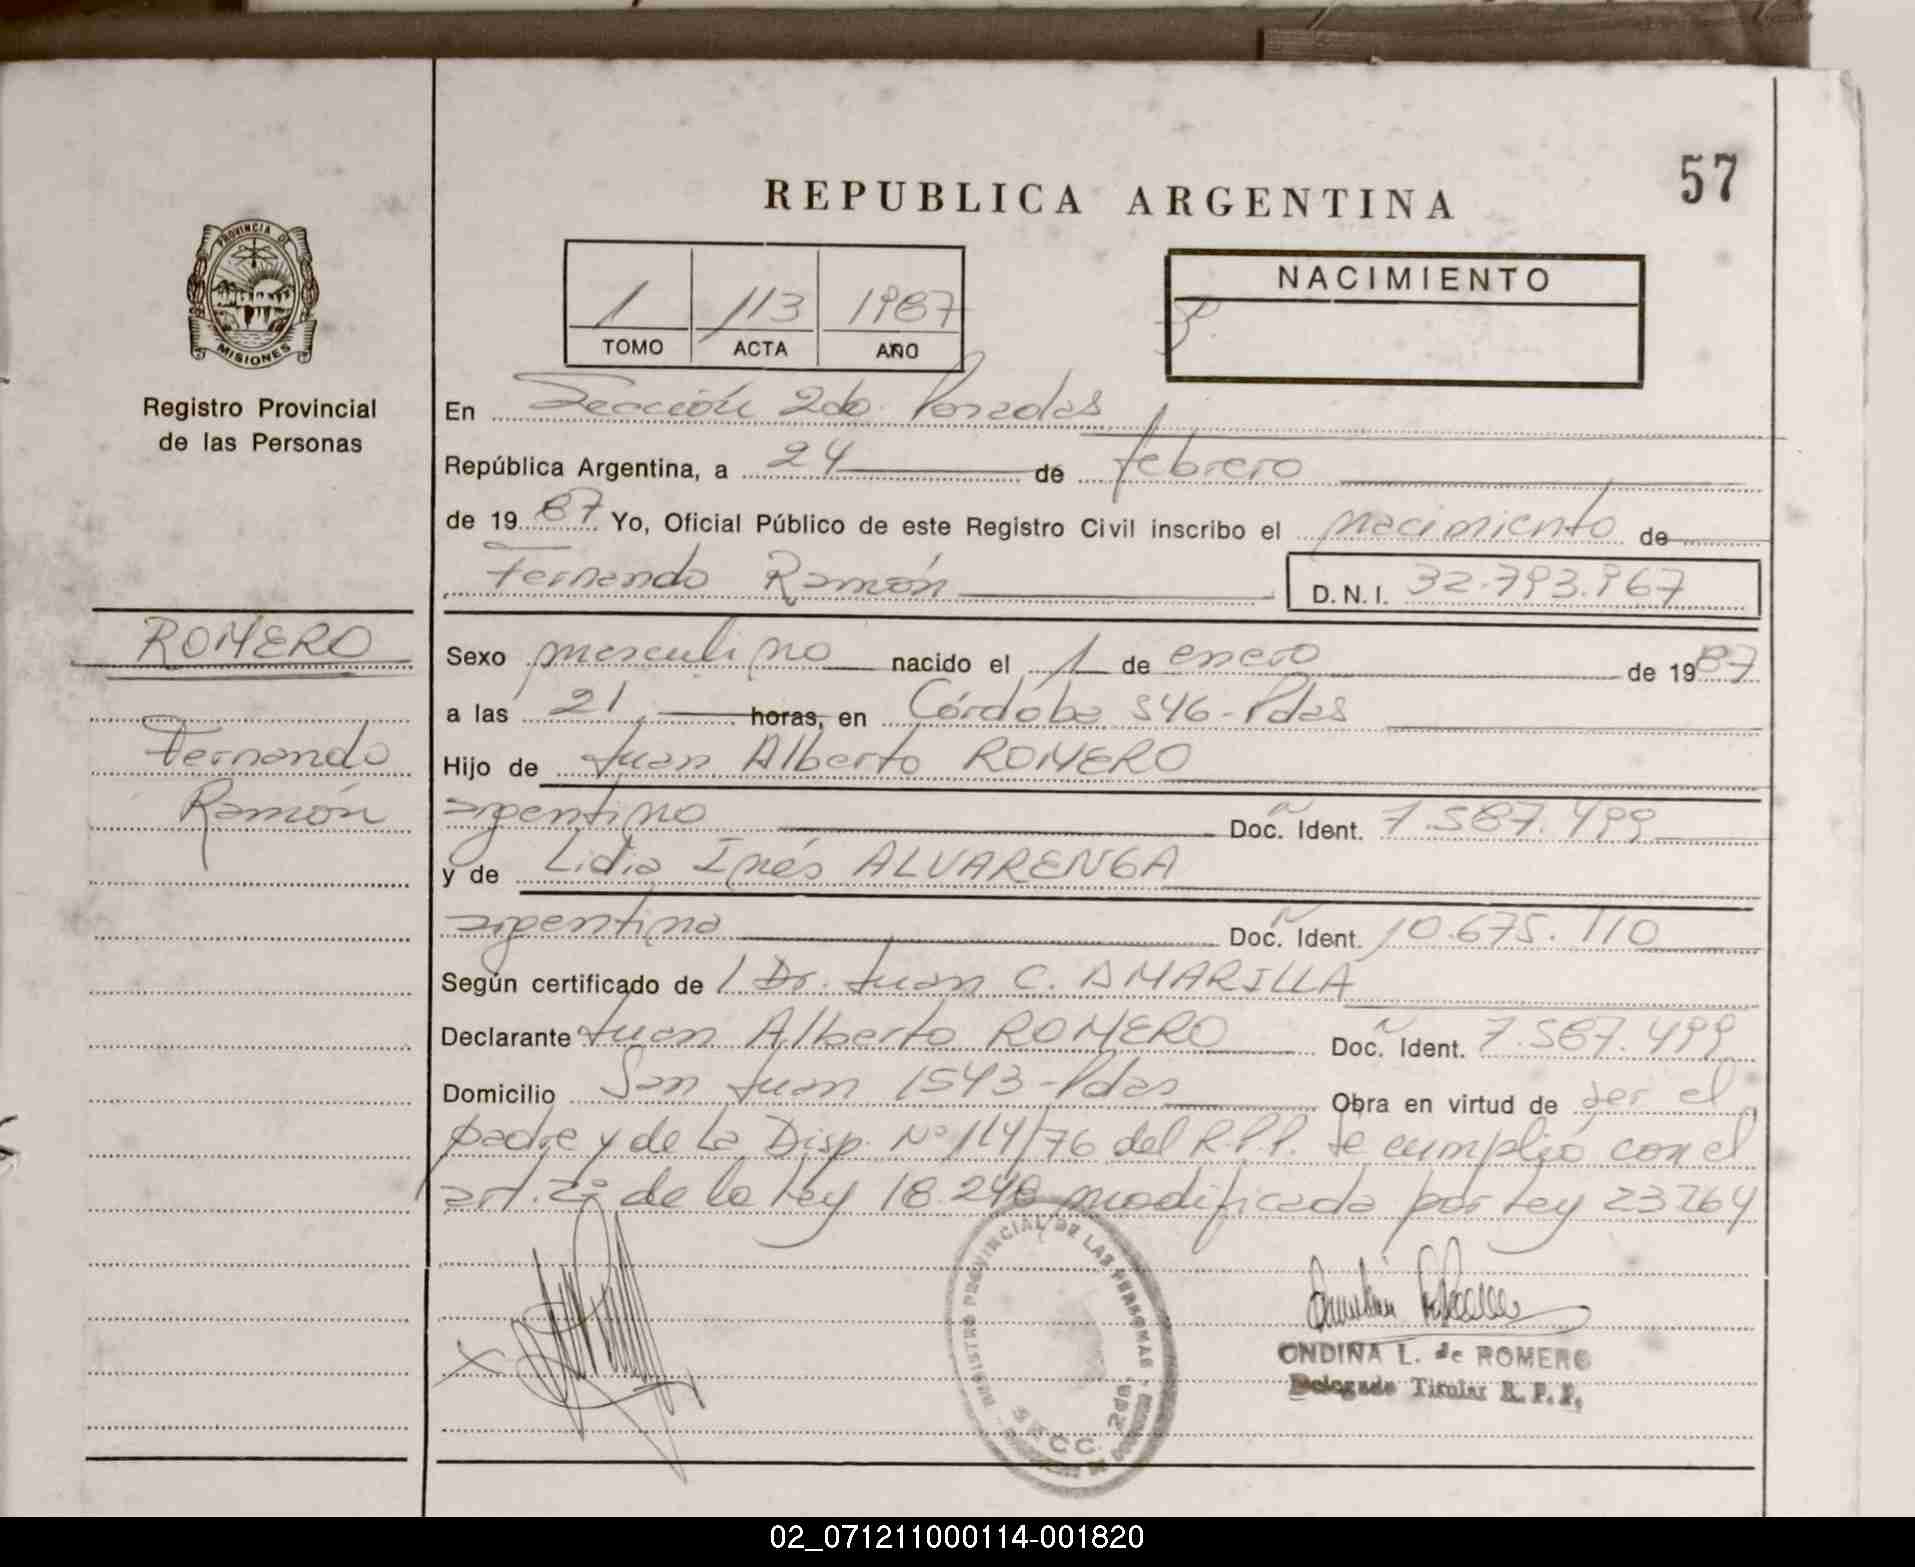 57
REPUBLICA ARGENTINA
PROVINCIA DE
MISIONES
Registro Provincial
de las Personas
1 113 1987
TOMO ACTA AÑO
NACIMIENTO
En Sección 2do. Posadas
República Argentina, a 24 de febrero
de 1987 Yo, Oficial Público de este Registro Civil inscribo el nacimiento de
Fernando Ramón D.N.I. 32.793.967
ROMERO
Fernando
Ramón
Sexo masculino nacido el 1 de enero de 1987
a las 21 horas, en Córdoba 546-Pdas
Hijo de Juan Alberto ROMERO
argentino Doc. Ident. 7.587.499
y de Lidia Inés ALVARENGA
argentina Doc. Ident. 10.675.110
Según certificado de l Dr. Juan C. AMARILLA
Declarante Juan Alberto ROMERO Doc. Ident. 7.587.499
Domicilio San Juan 1543-Pdas Obra en virtud de ser el
padre y de la Disp. Nº 114/76 del R.P.P. Se cumplió con el
art. 2º de la Ley 18.248 modificada por Ley 23264
REGISTRO PROVINCIAL DE LAS PERSONAS
SECC. 2da.
ONDINA L. de ROMERO
Delegado Titular R.P.P.
02_071211000114-001820